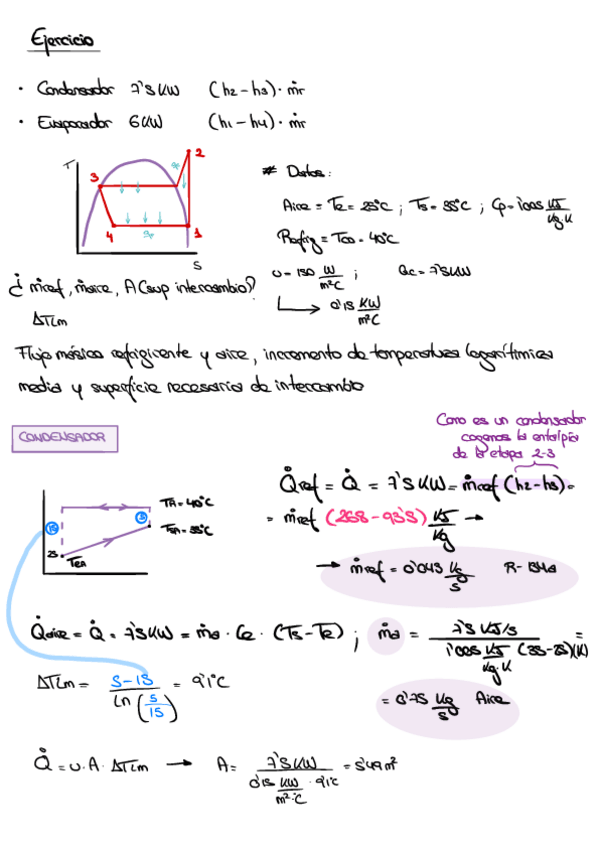 Ejercicio
· Condensador 7'5 KW (h2 - h3) · ṁr
· Evaporador 6 KW (h1 - h4) · ṁr
T
2
3
qc
4
1
S
# Datos:
Aire = Te = 25°C ; Ts = 35°C ; Cp = 1'005 KJ/Kg·K
Refrig = Tco = 40°C
U = 150 W/m²°C ; Qc = 7'5 KW
0'15 KW/m²°C
¿ ṁref, ṁaire, A (sup intercambio)?
ΔTLm
Flujo másico refrigerante y aire, incremento de temperatura logarítmica
media y superficie necesaria de intercambio
CONDENSADOR
Como es un condensador
cogemos la entalpía
de la etapa 2-3
Q̇ref = Q̇ = 7'5 KW = ṁref (h2 - h3) =
= ṁref (268 - 93'5) KJ/Kg →
→ ṁref = 0'043 Kg/s R-134a
TA = 40°C
5
TSA = 35°C
15
25
TEA
Q̇aire = Q̇ = 7'5 KW = ṁa · Ce · (Ts - Te) ; ṁa = 7'5 KJ/s / 1'005 KJ/Kg·K (35 - 25)(K) =
= 0'75 Kg/s Aire
ΔTLm = 5 - 15 / Ln (5/15) = 9'1°C
Q̇ = U · A · ΔTLm → A = 7'5 KW / 0'15 KW/m²·°C · 9'1°C = 5'49 m²